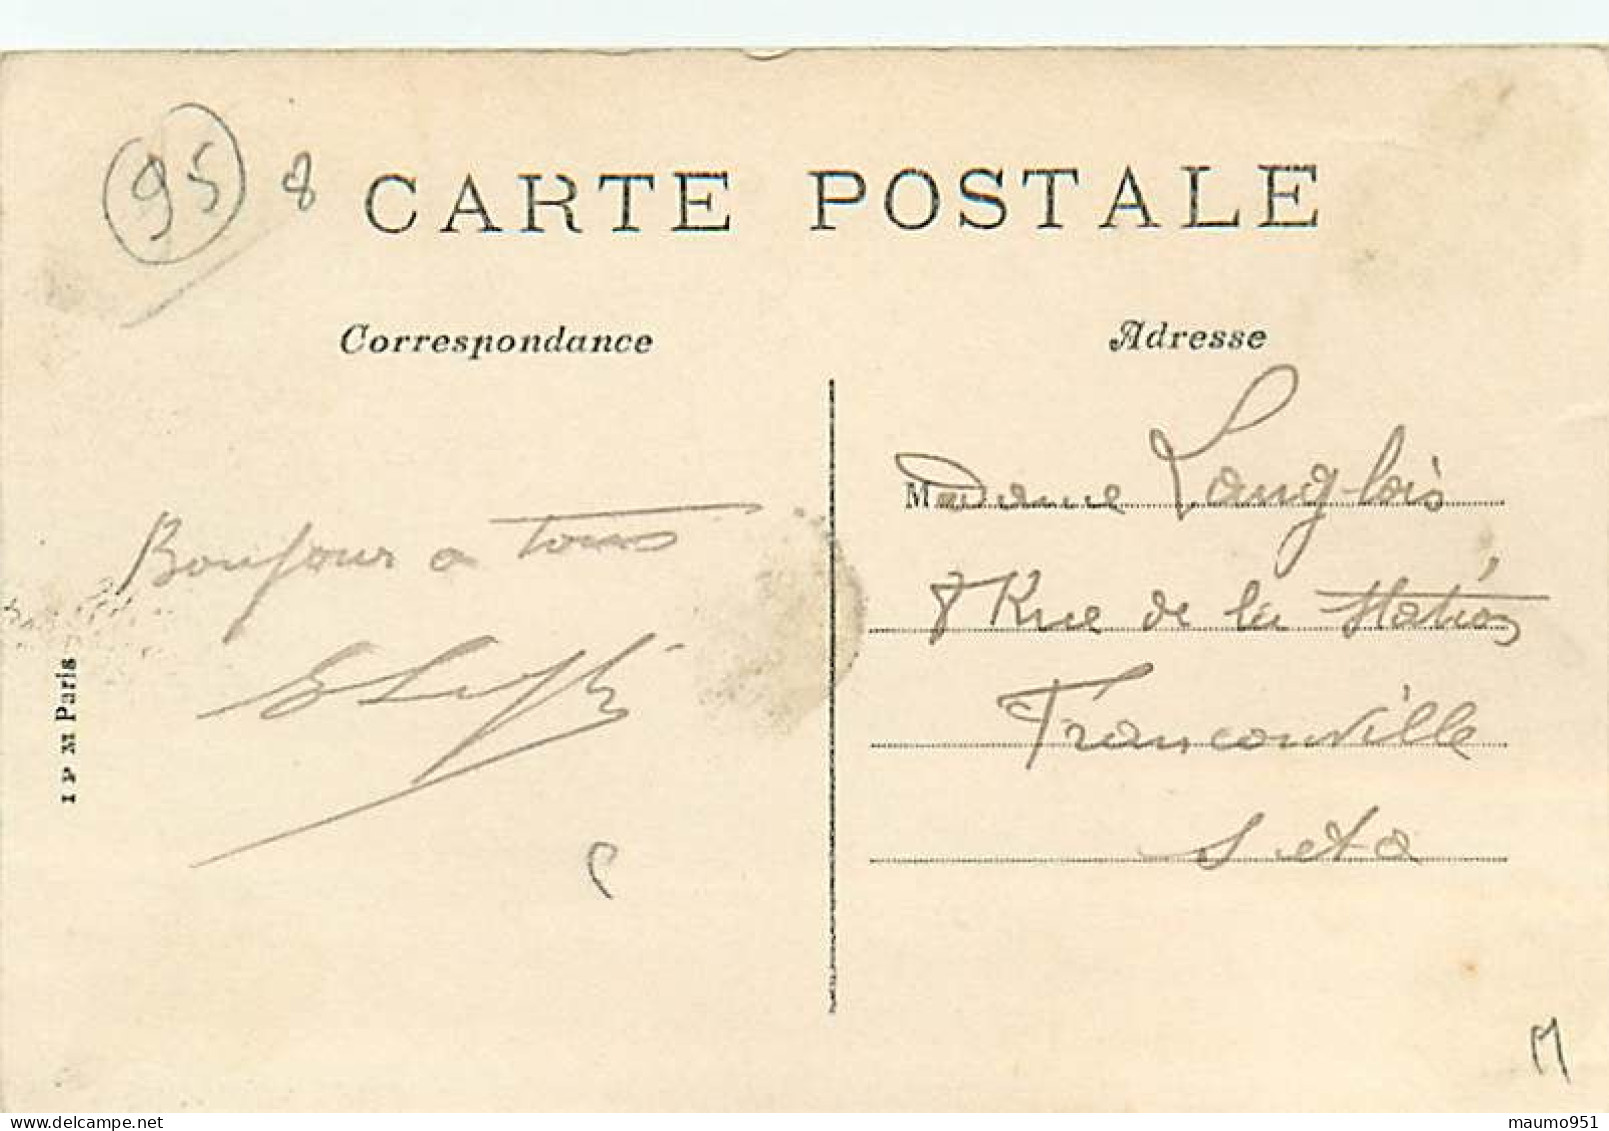 95 8
CARTE POSTALE
Correspondance
Bonjour a tous
Adresse
Madame Langlois
8 Rue de la Station
Franconville
S et O
I P M Paris
maumo951